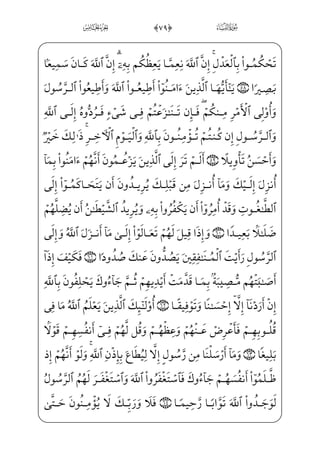 سُورَةُ النِّسَاءِ ﴿٧٩﴾ الجُزْءُ الخَامِسُ
تَحْكُمُوا۟ بِٱلْعَدْلِ ۚ إِنَّ ٱللَّهَ نِعِمَّا يَعِظُكُم بِهِۦٓ ۗ إِنَّ ٱللَّهَ كَانَ سَمِيعًۢا
بَصِيرًا ۝٥٨ يَٰٓأَيُّهَا ٱلَّذِينَ ءَامَنُوٓا۟ أَطِيعُوا۟ ٱللَّهَ وَأَطِيعُوا۟ ٱلرَّسُولَ
وَأُو۟لِى ٱلْأَمْرِ مِنكُمْ ۖ فَإِن تَنَٰزَعْتُمْ فِى شَىْءٍ فَرُدُّوهُ إِلَى ٱللَّهِ
وَٱلرَّسُولِ إِن كُنتُمْ تُؤْمِنُونَ بِٱللَّهِ وَٱلْيَوْمِ ٱلْءَاخِرِ ۚ ذَٰلِكَ خَيْرٌ
وَأَحْسَنُ تَأْوِيلًا ۝٥٩ أَلَمْ تَرَ إِلَى ٱلَّذِينَ يَزْعُمُونَ أَنَّهُمْ ءَامَنُوا۟ بِمَآ
أُنزِلَ إِلَيْكَ وَمَآ أُنزِلَ مِن قَبْلِكَ يُرِيدُونَ أَن يَتَحَاكَمُوٓا۟ إِلَى
ٱلطَّٰغُوتِ وَقَدْ أُمِرُوٓا۟ أَن يَكْفُرُوا۟ بِهِۦ وَيُرِيدُ ٱلشَّيْطَٰنُ أَن يُضِلَّهُمْ
ضَلَٰلًۢا بَعِيدًا ۝٦٠ وَإِذَا قِيلَ لَهُمْ تَعَالَوْا۟ إِلَىٰ مَآ أَنزَلَ ٱللَّهُ وَإِلَى
ٱلرَّسُولِ رَأَيْتَ ٱلْمُنَٰفِقِينَ يَصُدُّونَ عَنكَ صُدُودًا ۝٦١ فَكَيْفَ إِذَآ
أَصَٰبَتْهُم مُّصِيبَةٌۢ بِمَا قَدَّمَتْ أَيْدِيهِمْ ثُمَّ جَآءُوكَ يَحْلِفُونَ بِٱللَّهِ
إِنْ أَرَدْنَآ إِلَّآ إِحْسَٰنًا وَتَوْفِيقًا ۝٦٢ أُو۟لَٰٓئِكَ ٱلَّذِينَ يَعْلَمُ ٱللَّهُ مَا فِى
قُلُوبِهِمْ فَأَعْرِضْ عَنْهُمْ وَعِظْهُمْ وَقُل لَّهُمْ فِىٓ أَنفُسِهِمْ قَوْلًۢا
بَلِيغًا ۝٦٣ وَمَآ أَرْسَلْنَا مِن رَّسُولٍ إِلَّا لِيُطَاعَ بِإِذْنِ ٱللَّهِ ۚ وَلَوْ أَنَّهُمْ إِذ
ظَّلَمُوٓا۟ أَنفُسَهُمْ جَآءُوكَ فَٱسْتَغْفَرُوا۟ ٱللَّهَ وَٱسْتَغْفَرَ لَهُمُ ٱلرَّسُولُ
لَوَجَدُوا۟ ٱللَّهَ تَوَّابًا رَّحِيمًا ۝٦٤ فَلَا وَرَبِّكَ لَا يُؤْمِنُونَ حَتَّىٰ